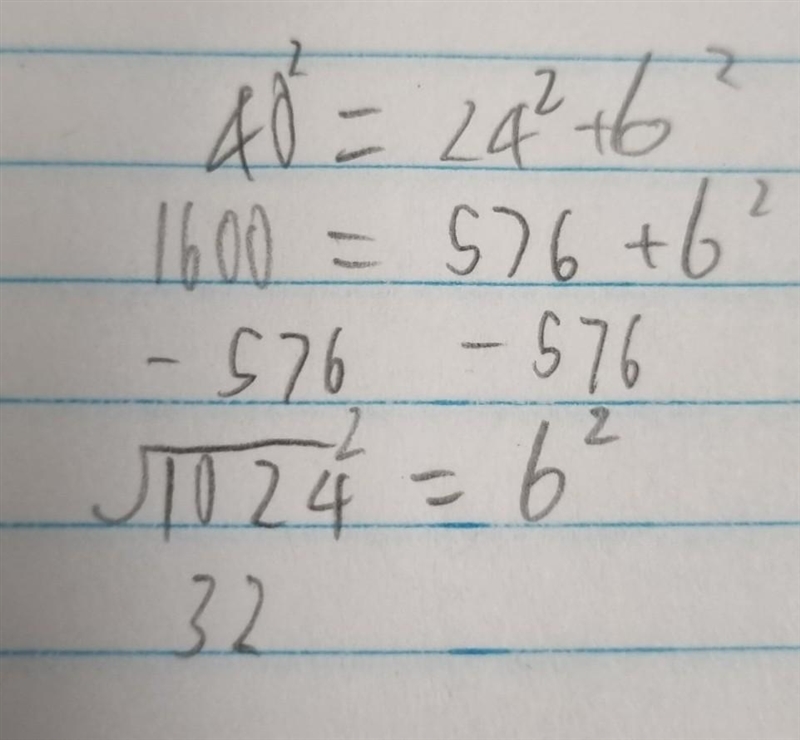 40² = 24² + b²
1600 = 576 + b²
- 576 - 576
√1024² = b²
32